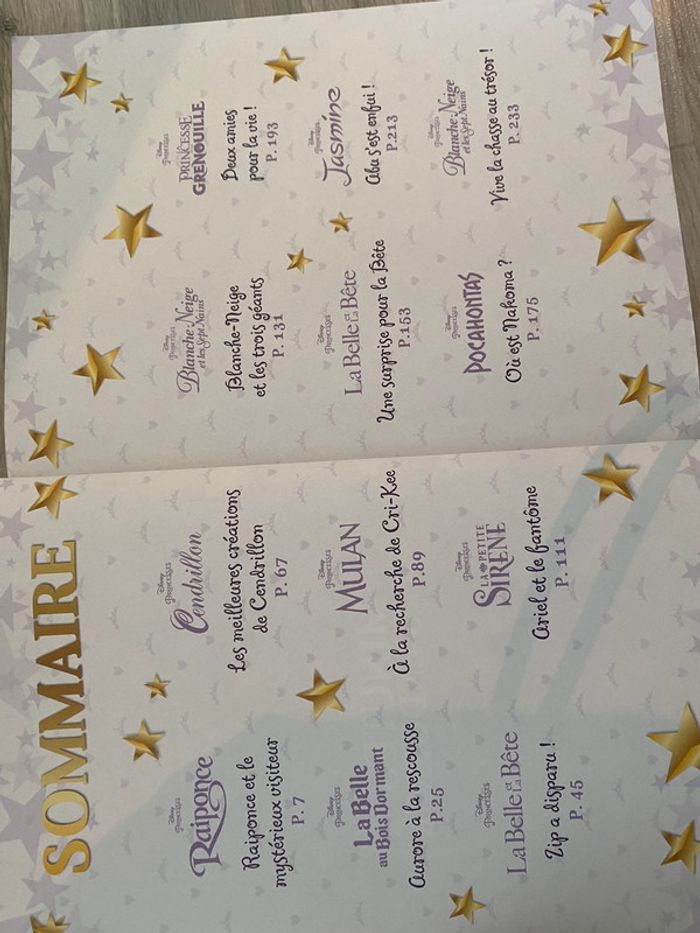 SOMMAIRE
Disney
Princesses
Raiponce
Raiponce et le
mystérieux visiteur
P. 7
Disney
Princesses
La Belle
au Bois Dormant
Aurore à la rescousse
P.25
Disney
Princesses
La Belle et la Bête
Zip a disparu !
P. 45
Disney
Princesses
Cendrillon
Les meilleures créations
de Cendrillon
P. 67
Disney
Princesses
MULAN
À la recherche de Cri-Kee
P.89
Disney
Princesses
LA PETITE
SIRÈNE
Ariel et le fantôme
P. 111
Disney
Princesses
Blanche-Neige
et les Sept Nains
Blanche-Neige
et les trois géants
P. 131
Disney
Princesses
La Belle et la Bête
Une surprise pour la Bête
P.153
Disney
Princesses
POCAHONTAS
Où est Nakoma ?
P. 175
Disney
Princesses
LA
PRINCESSE
ET LA
GRENOUILLE
Deux amies
pour la vie !
P. 193
Disney
Princesses
Jasmine
Abu s'est enfui !
P.213
Disney
Princesses
Blanche-Neige
et les Sept Nains
Vive la chasse au trésor !
P. 233